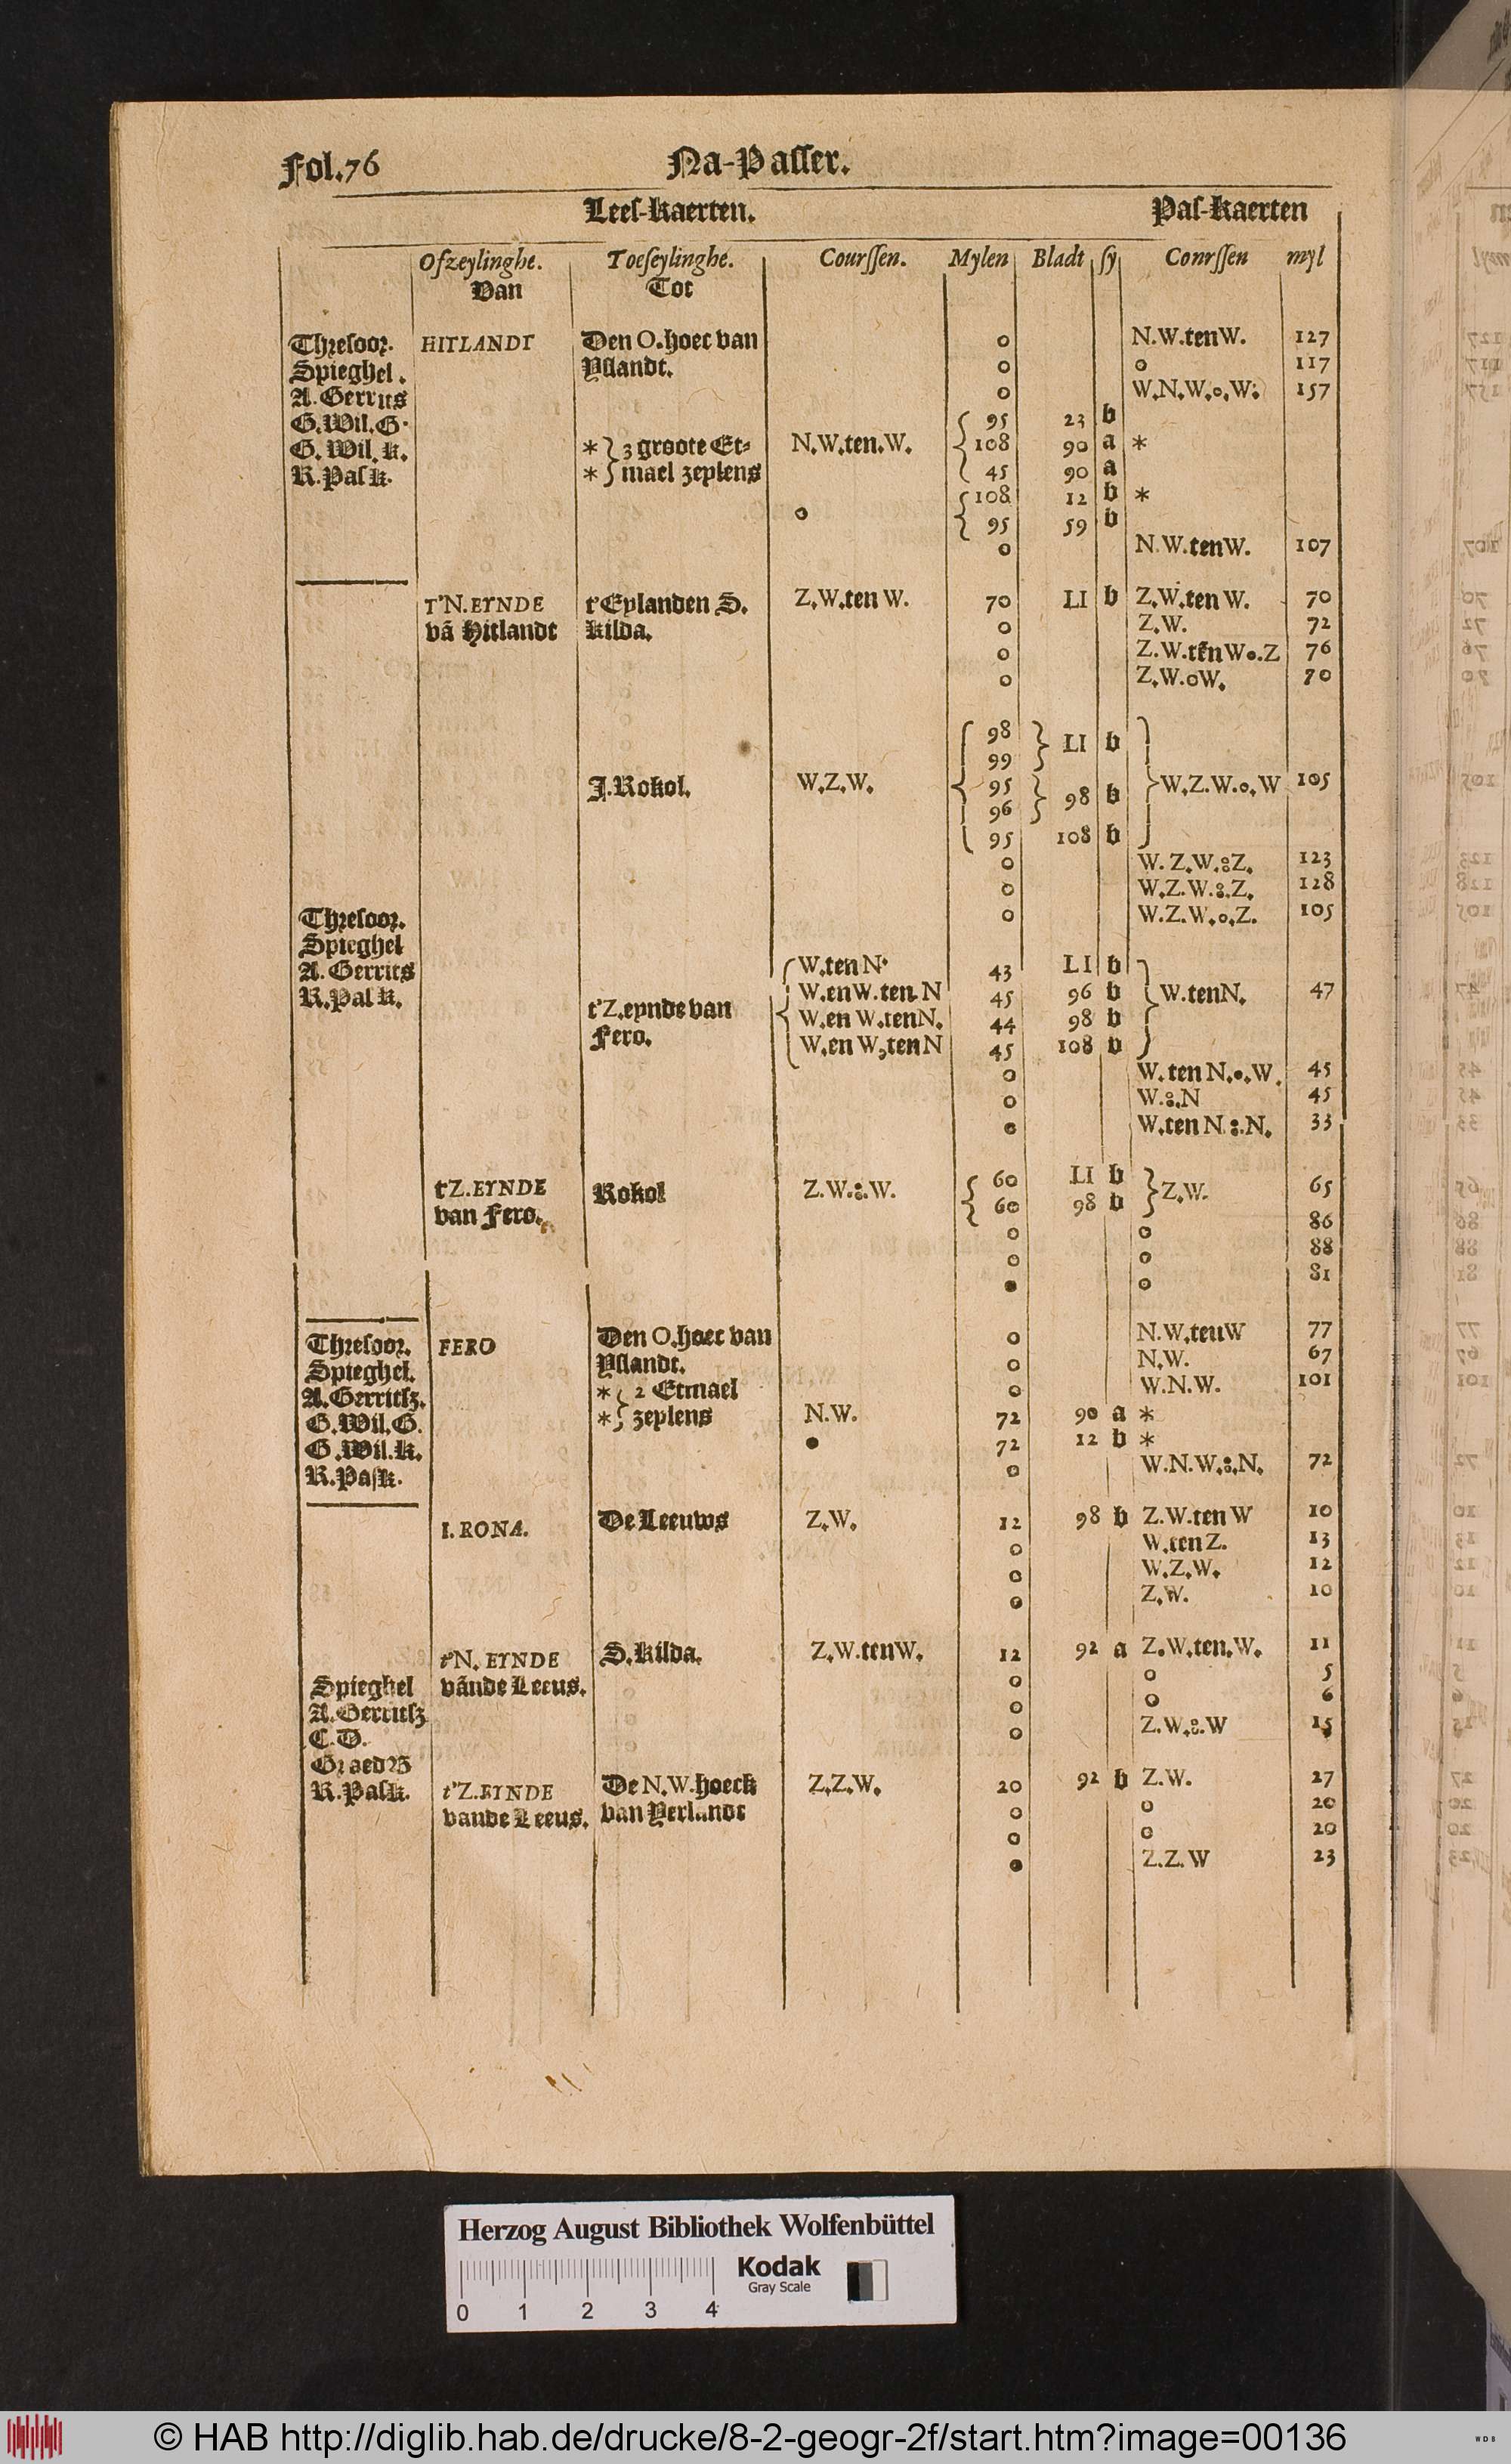 Fol.76 Na-Passer.
Leeſ-kaerten. Paſ-kaerten
Ofzeylinghe. Toeſeylinghe. Courſſen. Mylen Bladt ſy Conrſſen myl
Van Tot
Threſoor. HITLANDT Den O.hoec van o N.W.tenW. 127
Spieghel. Yſlandt. o o 117
A.Gerrits o W.N.W.o.W. 157
G.Wil.G. 95 23 b
G.Wil.k. * } 3 groote Et- N.W.ten.W. 108 90 a *
R.Paſk. * } mael zeylens 45 90 a
108 12 b *
o 95 59 b
o N.W.tenW. 107
T'N.EYNDE t'Eylanden S. Z.W.ten W. 70 LI b Z.W.ten W. 70
vã Hitlandt Kilda. o Z.W. 72
o Z.W.tenWo.Z 76
o Z.W.oW. 70
98
LI b
99
I.Rokol. W.Z.W. 95 W.Z.W.o.W 105
98 b
96
95 108 b
o W.Z.W.:Z. 123
o W.Z.W.:.Z. 128
Threſoor. o W.Z.W.o.Z. 105
Spieghel
A.Gerrits W.tenN. 43 LI b
R.Paſk. W.enW.ten.N 45 96 b W.tenN. 47
t'Z.eynde van W.en W.tenN. 44 98 b
Fero. W.en W,tenN 45 108 b
o W.ten N.o.W. 45
o W.:.N 45
o W.ten N.:.N. 33
t'Z.EYNDE Rokol Z.W.:.W. 60 LI b Z.W. 65
van Fero. 60 98 b
o o 86
o o 88
o o 81
Threſoor. FERO Den O.hoec van o N.W.tenW 77
Spieghel. Yſlandt. o N.W. 67
A.Gerritſz. * } 2 Etmael o W.N.W. 101
G.Wil.G. * } zeylens N.W. 72 90 a *
G.Wil.k. o 72 12 b *
R.Paſk. o W.N.W.:.N. 72
I.RONA. De Leeuws Z.W. 12 98 b Z.W.ten W 10
o W.ten Z. 13
o W.Z.W. 12
o Z.W. 10
t'N.EYNDE S.Kilda. Z.W.tenW. 12 92 a Z.W.ten.W. 11
Spieghel vãnde Leeus. o o 5
A.Gerritſz o o 6
C.D. o Z.W.:.W 15
GraedB
R.Paſk. t'Z.EYNDE De N.W.hoeck Z.Z.W. 20 92 b Z.W. 27
vande Leeus. van Yerlandt o o 20
o o 20
o Z.Z.W 23
Herzog August Bibliothek Wolfenbüttel
Kodak
Gray Scale
0 1 2 3 4
© HAB http://diglib.hab.de/drucke/8-2-geogr-2f/start.htm?image=00136